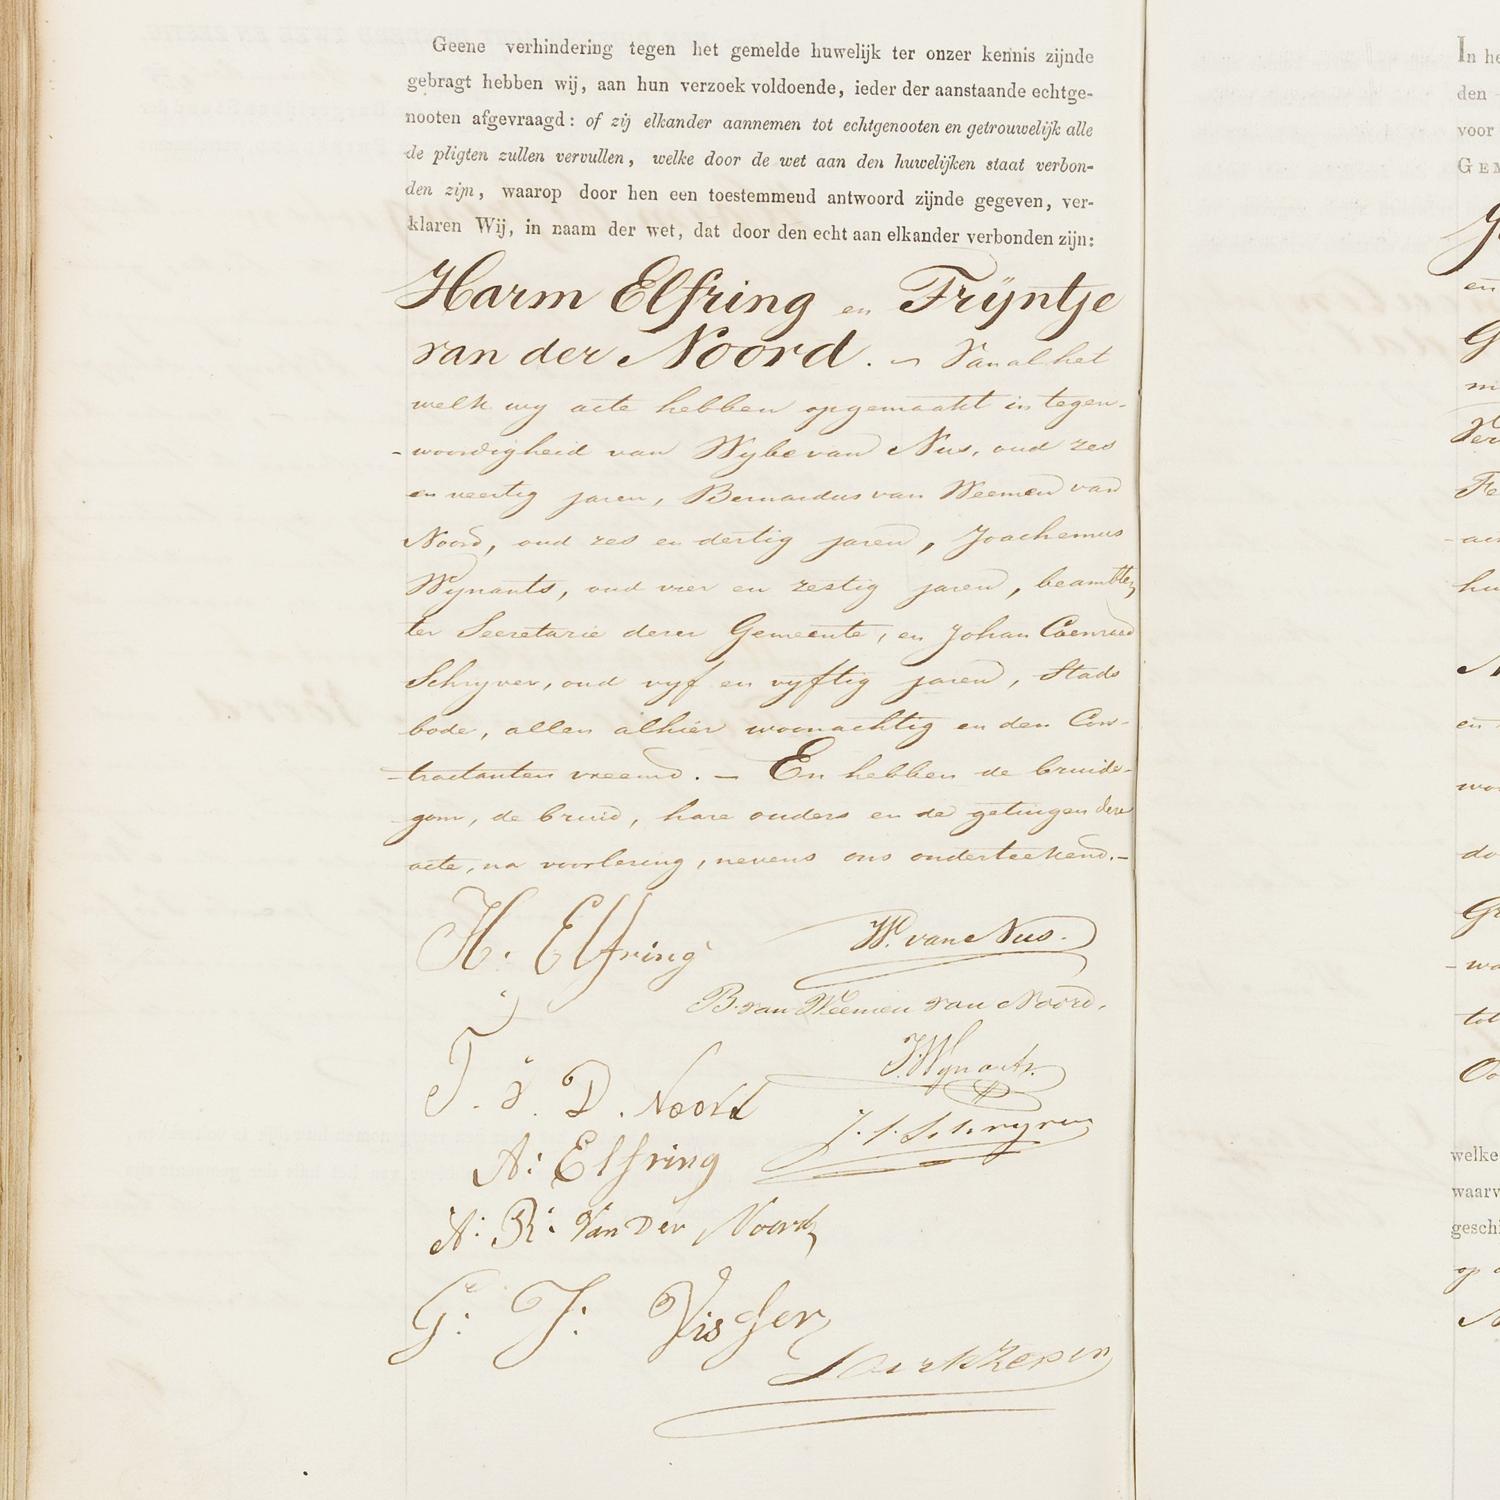 Geene verhindering tegen het gemelde huwelijk ter onzer kennis zijnde
gebragt hebben wij, aan hun verzoek voldoende, ieder der aanstaande echtge-
nooten afgevraagd: of zij elkander aannemen tot echtgenooten en getrouwelijk alle
de pligten zullen vervullen, welke door de wet aan den huwelijken staat verbon-
den zijn, waarop door hen een toestemmend antwoord zijnde gegeven, ver-
klaren Wij, in naam der wet, dat door den echt aan elkander verbonden zijn:
Harm Elfring en Trijntje
van der Noord. – Van al het
welk wy acte hebben opgemaakt in tegen-
-woordigheid van Wybe van Nus, oud zes
en veertig jaren, Bernardus van Weemen van
Noord, oud zes en dertig jaren, Joachemus
Wynants, oud vier en zestig jaren, beambten
ter Secretarie dezer Gemeente, en Johan Coenraad
Schryver, oud vyf en vyftig jaren, Stads
bode, allen alhier woonachtig en den Con-
-tractanten vreemd. – En hebben de bruide-
gom, de bruid, hare ouders en de getuigen dezer
acte, na voorlezing, nevens ons onderteekend.–
H. Elfring
W. van Nus.
B. van Weemen van Noord.
T. v. D. Noord
J. Wynants.
J. C. Schryver
A: Elfring
A: R: Van Der Noord
G: J: Visser
In he
den
voor
GEM
en
G
Fe
hu
en
do
Gr
tot
welke
waarv
geschi
op